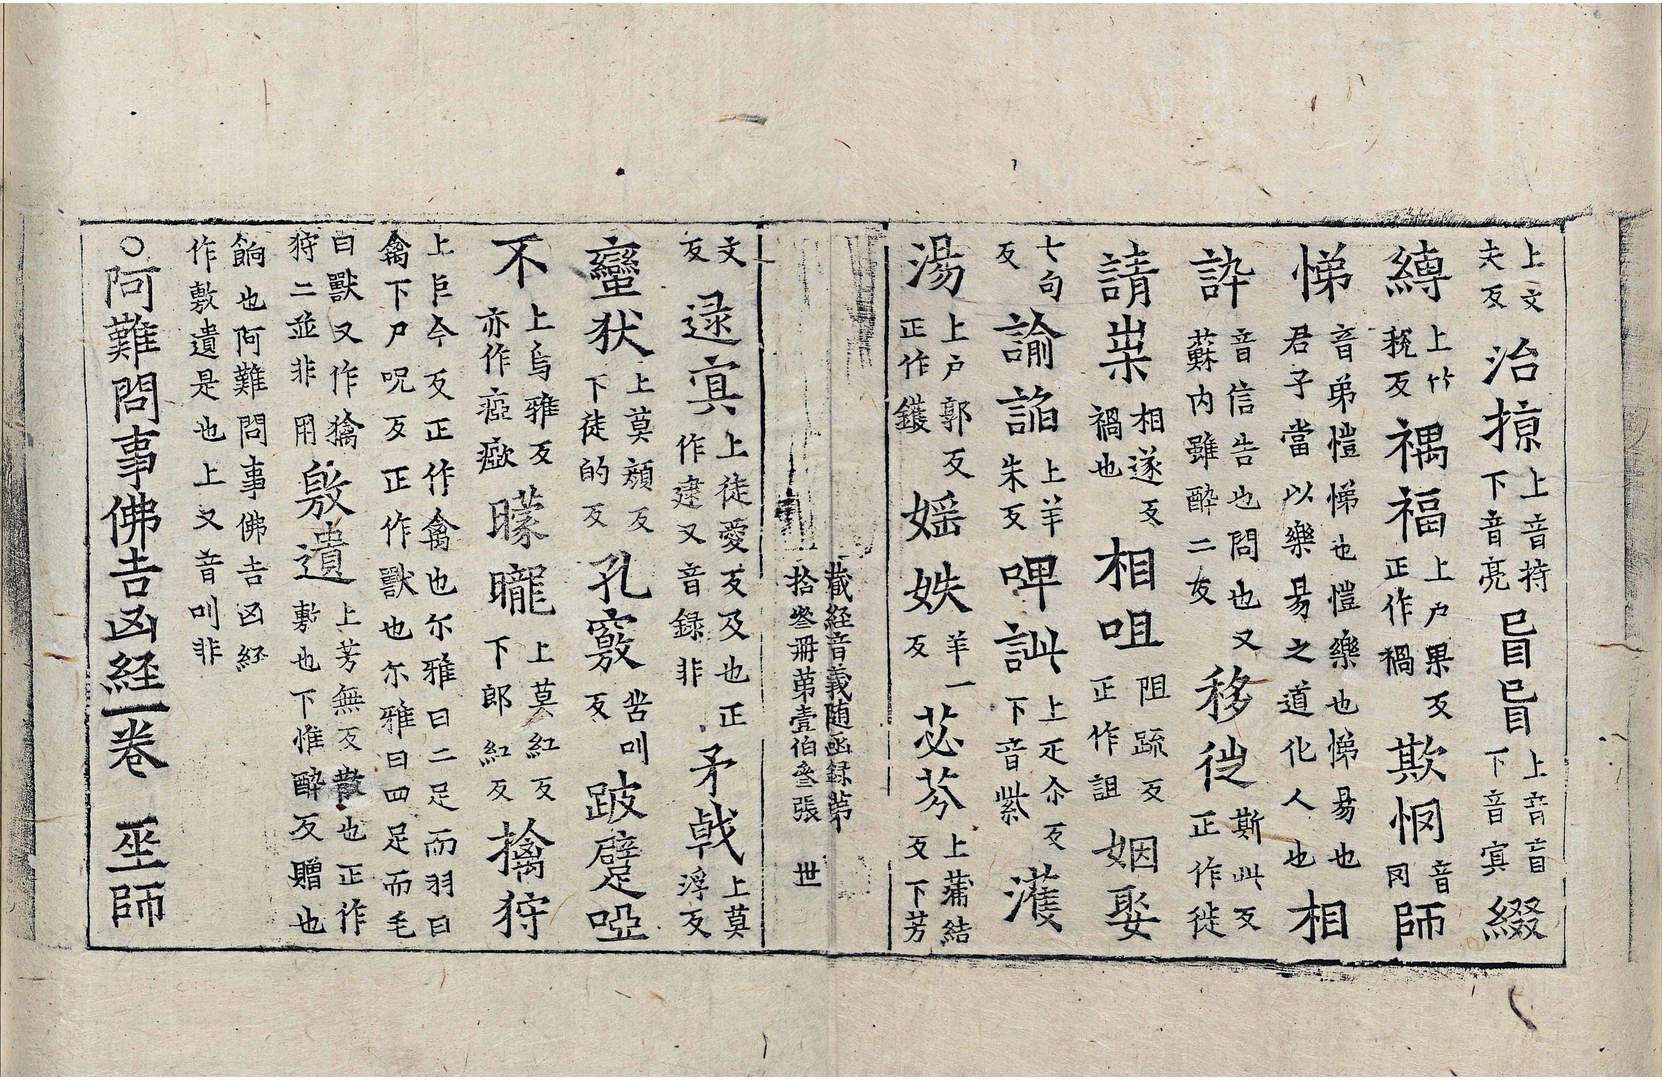 上文夫反治掠上音持下音亮㫖㫖上音盲下音㝠綴
縳上竹稅反禍福上户果反正作禍欺惘音罔師
悌音弟愷悌也愷樂也悌易也君子當以樂易之道化人也相
訡音信告也問也又蘇內雖醉二反移徙斯此反正作徙
請祟相遂反禍也相咀阻䟽反正作詛姻娶
七句反諭諂上羊朱反呻訿上疋尒反下音紫濩
湯上户郭反正作鑊婬妷羊一反苾芬上蒲結反下芳
藏経音義随函録第
拾叄冊苐壹伯叄張 世
文反逯㝠上徒愛反及也正作逮又音録非矛戟上莫浮反
蠻狄上莫頑反下徒的反孔竅苦叫反跛躄啞
不上烏雅反亦作瘂瘚矇矓上莫紅反下郎紅反擒狩
上巨今反正作禽也尒雅曰二足而羽曰禽下尸呪反正作獸也尒雅曰四足而毛
曰獸又作擒狩二並非用敫遺上芳無反散也正作敷也下惟醉反贈也
餉也阿難問事佛吉凶経作敷遺是也上又音叫非
○阿難問事佛吉凶経一卷 坐師